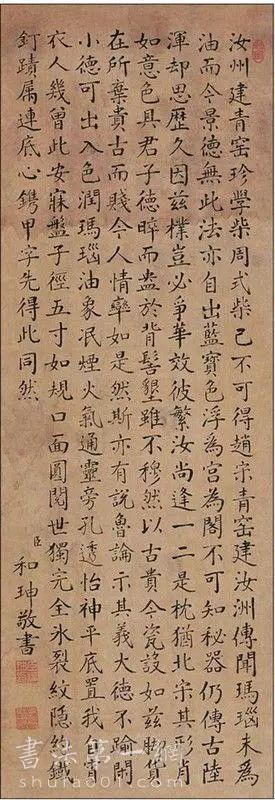 汝州建青窑珍學柴周式柴已不可得趙宋青窑建汝洲傳聞瑪瑙末為
油而今景德無此法亦自出藍寶色浮為宮為閣不可知秘器仍傳古陸
渾却思歷久因茲樸豈必爭華效彼繁汝尚逢一二是枕猶北宋其形肖
如意色具君子德睟而盎於背髻墾雖不穆然以古貴今瓷設如茲賸貨
在所棄貴古而賤今人情率如是然斯亦有說魯論示其義大德不踰閑
小德可出入色潤瑪瑙油象泯煙火氣通靈旁孔透怡神平底置我自宵
衣人幾曾此安寐盤子徑五寸如規口面圓閱世獨完全氷裂紋隱約鐵
釘蹟属連底心鐫甲字先得此同然
臣和珅敬書
書法第一網
shufa001.com